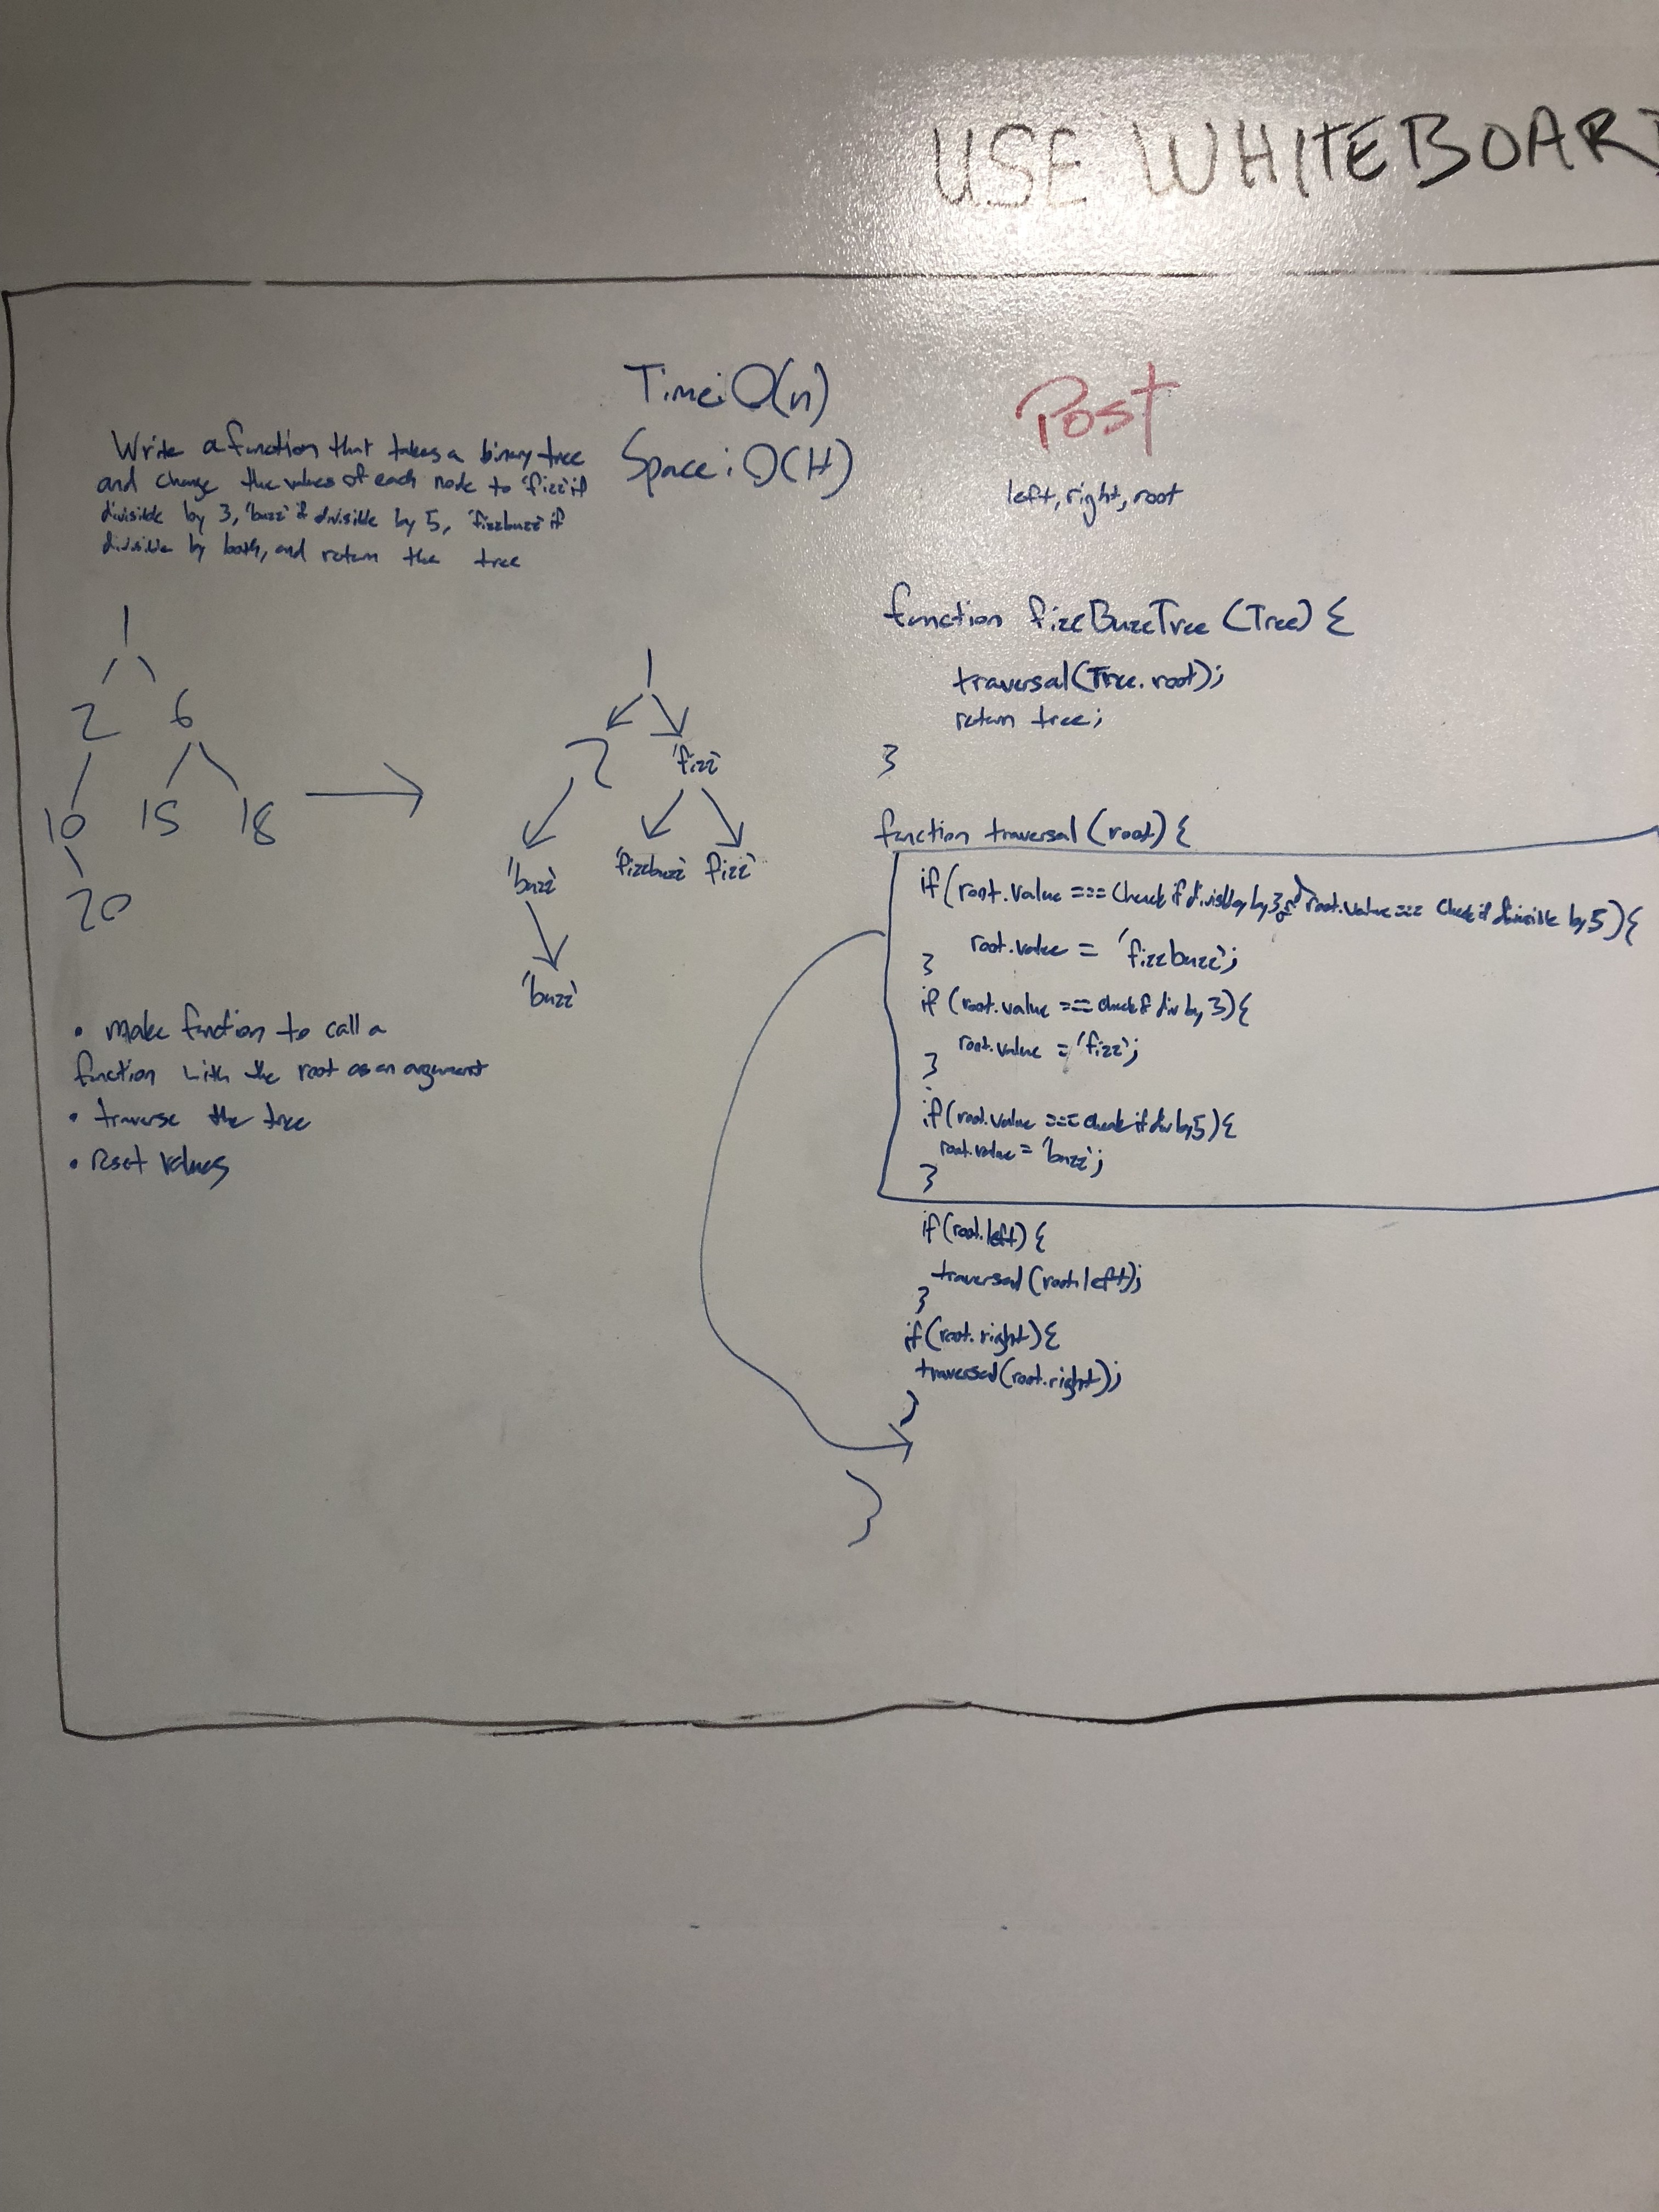 USE WHITEBOAR
Time: O(n)
Space: O(H)
Post
left, right, root
Write a function that takes a binary tree
and change the values of each node to 'fizz' if
divisible by 3, 'buzz' if divisible by 5, 'fizzbuzz' if
divisible by both, and return the tree
1
2 6
10 15 18
20
1
2 'fizz'
'buzz' 'fizzbuzz' fizz'
'buzz'
• Make function to call a
function with the root as an argument
• traverse the tree
• reset values
function fizzBuzzTree (Tree) {
traversal(Tree.root);
return tree;
}
function traversal (root) {
if (root.value === Check if divisible by 3 && root.value === Check if divisible by 5) {
root.value = 'fizzbuzz';
}
if (root.value === check if div by 3) {
root.value = 'fizz';
}
if (root.value === check if div by 5) {
root.value = 'buzz';
}
if (root.left) {
traversal (root.left);
}
if (root.right) {
traversal (root.right);
}
}